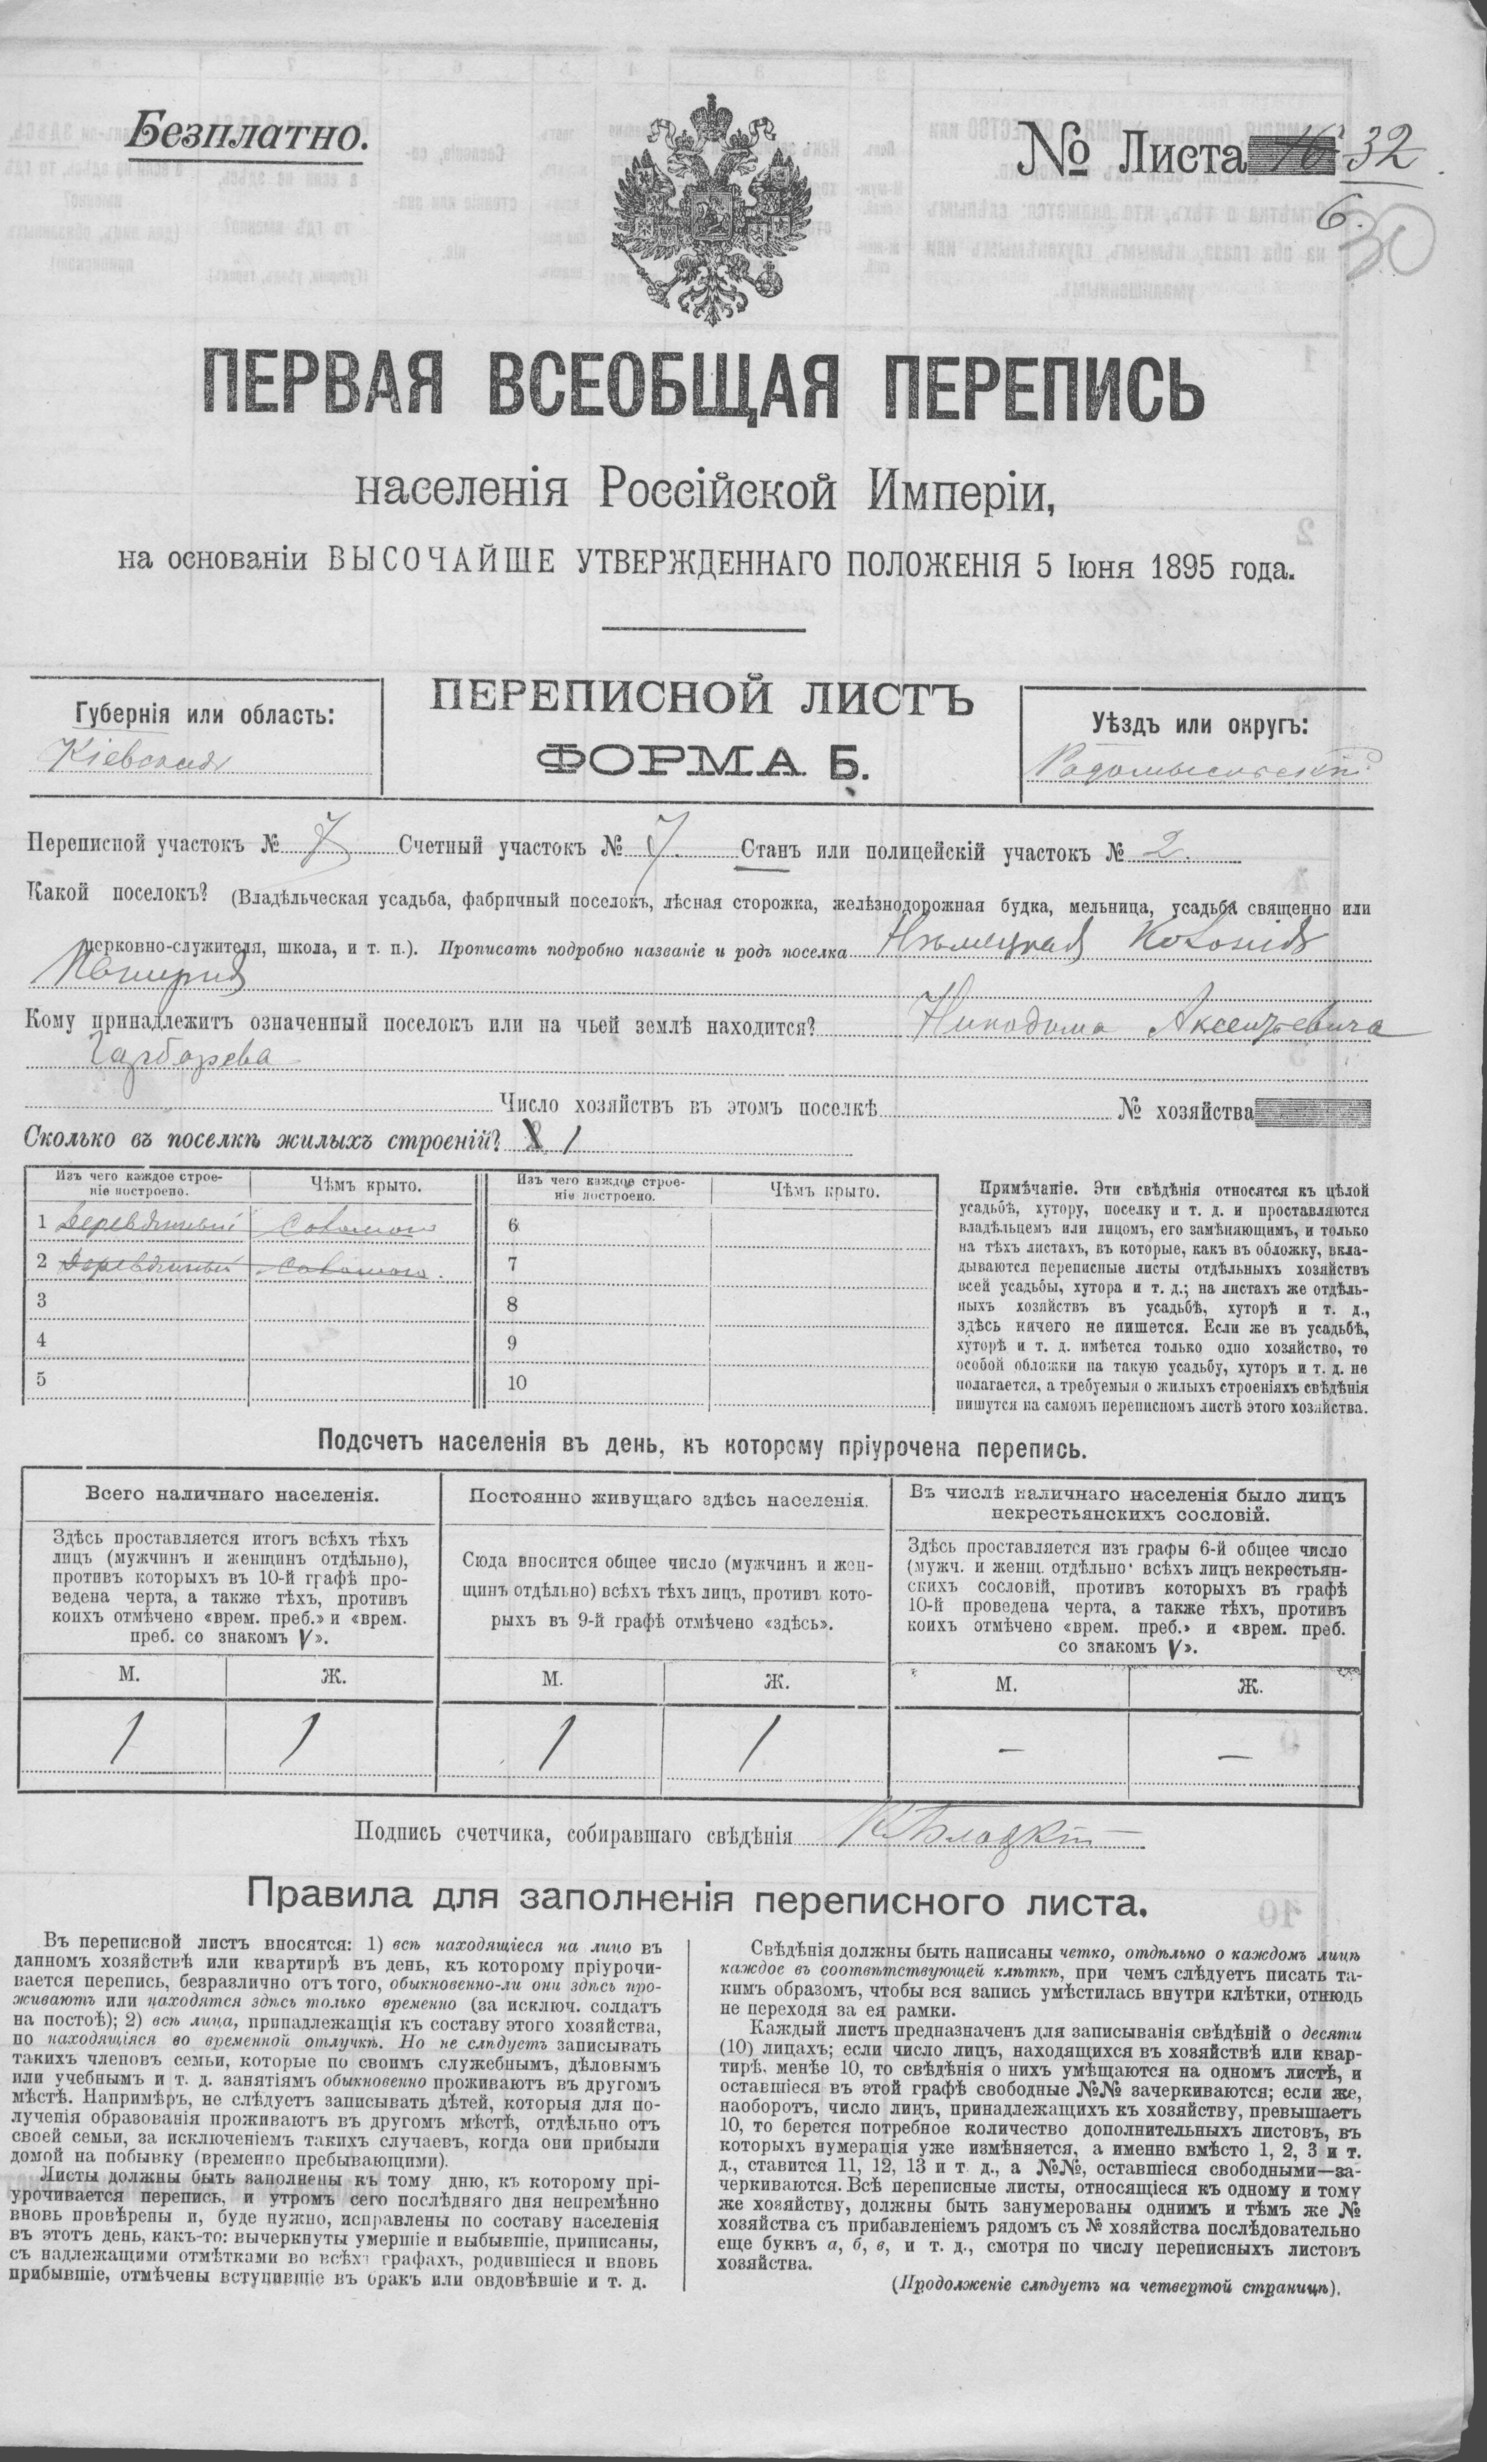 Безплатно.
№ Листа 16 32
6.
30
ПЕРВАЯ ВСЕОБЩАЯ ПЕРЕПИСЬ
населенія Россійской Имперіи,
на основаніи ВЫСОЧАЙШЕ УТВЕРЖДЕННАГО ПОЛОЖЕНІЯ 5 Іюня 1895 года.
Губернія или область:
Кіевская
ПЕРЕПИСНОЙ ЛИСТЪ
ФОРМА Б.
Уѣздъ или округъ:
Радомысльскій
Переписной участокъ № 7 Счетный участокъ № 7. Станъ или полицейскій участокъ № 2.
Какой поселокъ? (Владѣльческая усадьба, фабричный поселокъ, лѣсная сторожка, желѣзнодорожная будка, мельница, усадьба священно или
церковно-служителя, школа, и т. п.). Прописать подробно названіе и родъ поселка Нѣмецкая Колонія
Кому принадлежитъ означенный поселокъ или на чьей землѣ находится? Никодима Аксентьевича
Число хозяйствъ въ этомъ поселкѣ № хозяйства
Сколько въ поселкѣ жилыхъ строеній? 1
Изъ чего каждое строе-
ніе построено.
Чѣмъ крыто.
1 Деревянный Соломою
2 Деревянный Соломою.
3
4
5
Изъ чего каждое строе-
ніе построено.
Чѣмъ крыто.
6
7
8
9
10
Примѣчаніе. Эти свѣдѣнія относятся къ цѣлой
усадьбѣ, хутору, поселку и т. д. и проставляются
владѣльцемъ или лицомъ, его замѣняющимъ, и только
на тѣхъ листахъ, въ которые, какъ въ обложку, вкла-
дываются переписные листы отдѣльныхъ хозяйствъ
всей усадьбы, хутора и т. д.; на листахъ же отдѣль-
ныхъ хозяйствъ въ усадьбѣ, хуторѣ и т. д.,
здѣсь ничего не пишется. Если же въ усадьбѣ,
хуторѣ и т. д. имѣется только одно хозяйство, то
особой обложки на такую усадьбу, хуторъ и т. д. не
полагается, а требуемыя о жилыхъ строеніяхъ свѣдѣнія
пишутся на самомъ переписномъ листѣ этого хозяйства.
Подсчетъ населенія въ день, къ которому пріурочена перепись.
Всего наличнаго населенія.
Здѣсь проставляется итогъ всѣхъ тѣхъ
лицъ (мужчинъ и женщинъ отдѣльно),
противъ которыхъ въ 10-й графѣ про-
ведена черта, а также тѣхъ, противъ
коихъ отмѣчено «врем. преб.» и «врем.
преб. со знакомъ V».
М. Ж.
1 1
Постоянно живущаго здѣсь населенія.
Сюда вносится общее число (мужчинъ и жен-
щинъ отдѣльно) всѣхъ тѣхъ лицъ, противъ кото-
рыхъ въ 9-й графѣ отмѣчено «здѣсь».
М. Ж.
1 1
Въ числѣ наличнаго населенія было лицъ
некрестьянскихъ сословій.
Здѣсь проставляется изъ графы 6-й общее число
(мужч. и женщ. отдѣльно) всѣхъ лицъ некрестьян-
скихъ сословій, противъ которыхъ въ графѣ
10-й проведена черта, а также тѣхъ, противъ
коихъ отмѣчено «врем. преб.» и «врем. преб.
со знакомъ V».
М. Ж.
— —
Подпись счетчика, собиравшаго свѣдѣнія
Правила для заполненія переписного листа.
Въ переписной листъ вносятся: 1) всѣ находящіеся на лицо въ
данномъ хозяйствѣ или квартирѣ въ день, къ которому пріурочи-
вается перепись, безразлично отъ того, обыкновенно-ли они здѣсь про-
живаютъ или находятся здѣсь только временно (за исключ. солдатъ
на постоѣ); 2) всѣ лица, принадлежащія къ составу этого хозяйства,
но находящіяся во временной отлучкѣ. Но не слѣдуетъ записывать
такихъ членовъ семьи, которые по своимъ служебнымъ, дѣловымъ
или учебнымъ и т. д. занятіямъ обыкновенно проживаютъ въ другомъ
мѣстѣ. Напримѣръ, не слѣдуетъ записывать дѣтей, которыя для по-
лученія образованія проживаютъ въ другомъ мѣстѣ, отдѣльно отъ
своей семьи, за исключеніемъ такихъ случаевъ, когда они прибыли
домой на побывку (временно пребывающими).
Листы должны быть заполнены къ тому дню, къ которому прі-
урочивается перепись, и утромъ сего послѣдняго дня непремѣнно
вновь провѣрены и, буде нужно, исправлены по составу населенія
въ этотъ день, какъ-то: вычеркнуты умершіе и выбывшіе, приписаны,
съ надлежащими отмѣтками во всѣхъ графахъ, родившіеся и вновь
прибывшіе, отмѣчены вступившіе въ бракъ или овдовѣвшіе и т. д.
Свѣдѣнія должны быть написаны четко, отдѣльно о каждомъ лицѣ
каждое въ соотвѣтствующей клѣткѣ, при чемъ слѣдуетъ писать та-
кимъ образомъ, чтобы вся запись умѣстилась внутри клѣтки, отнюдь
не переходя за ея рамки.
Каждый листъ предназначенъ для записыванія свѣдѣній о десяти
(10) лицахъ; если число лицъ, находящихся въ хозяйствѣ или квар-
тирѣ, менѣе 10, то свѣдѣнія о нихъ умѣщаются на одномъ листѣ, и
оставшіеся въ этой графѣ свободные №№ зачеркиваются; если же,
наоборотъ, число лицъ, принадлежащихъ къ хозяйству, превышаетъ
10, то берется потребное количество дополнительныхъ листовъ, въ
которыхъ нумерація уже измѣняется, а именно вмѣсто 1, 2, 3 и т.
д., ставится 11, 12, 13 и т. д., а №№, оставшіеся свободными—за-
черкиваются. Всѣ переписные листы, относящіеся къ одному и тому
же хозяйству, должны быть занумерованы однимъ и тѣмъ же №
хозяйства съ прибавленіемъ рядомъ съ № хозяйства послѣдовательно
еще буквъ а, б, в, и т. д., смотря по числу переписныхъ листовъ
хозяйства.
(Продолженіе слѣдуетъ на четвертой страницѣ).